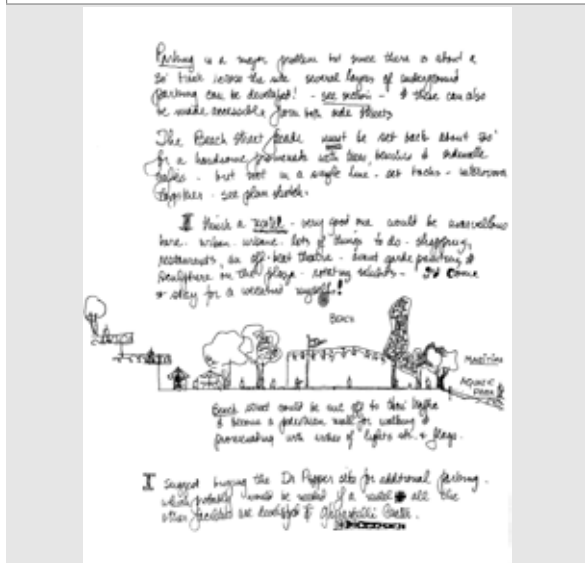 Parking is a major problem but since there is about a
30' bank across the site several layers of underground
parking can be developed! - see section - & these can also
be made accessible from both side streets
The Beach Street facade must be set back about 20'
for a handsome promenade with trees, benches & sidewalk
cafes - but not in a single line - set backs -
together - see plan sketch.
I think a motel - very good one would be marvellous
here. urban - urbane - lots of things to do - shopping,
restaurants, an off-beat theatre - avant garde painting &
sculpture on the plaza - rotating exhibits - I'd come
& stay for a weekend myself!
BEACH
MARITIME
AQUATIC
PARK
Beach street could be cut off to thru traffic
& become a pedestrian mall for walking &
promenading with strings of lights etc. & flags.
I suggest buying the Dr Pepper site for additional parking -
which probably would be needed if a motel & all the
other facilities are developed @ Ghirardelli Center.